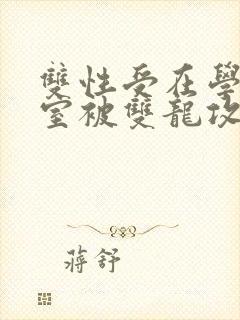 雙性受在學
室被雙龍攻
蔣舒